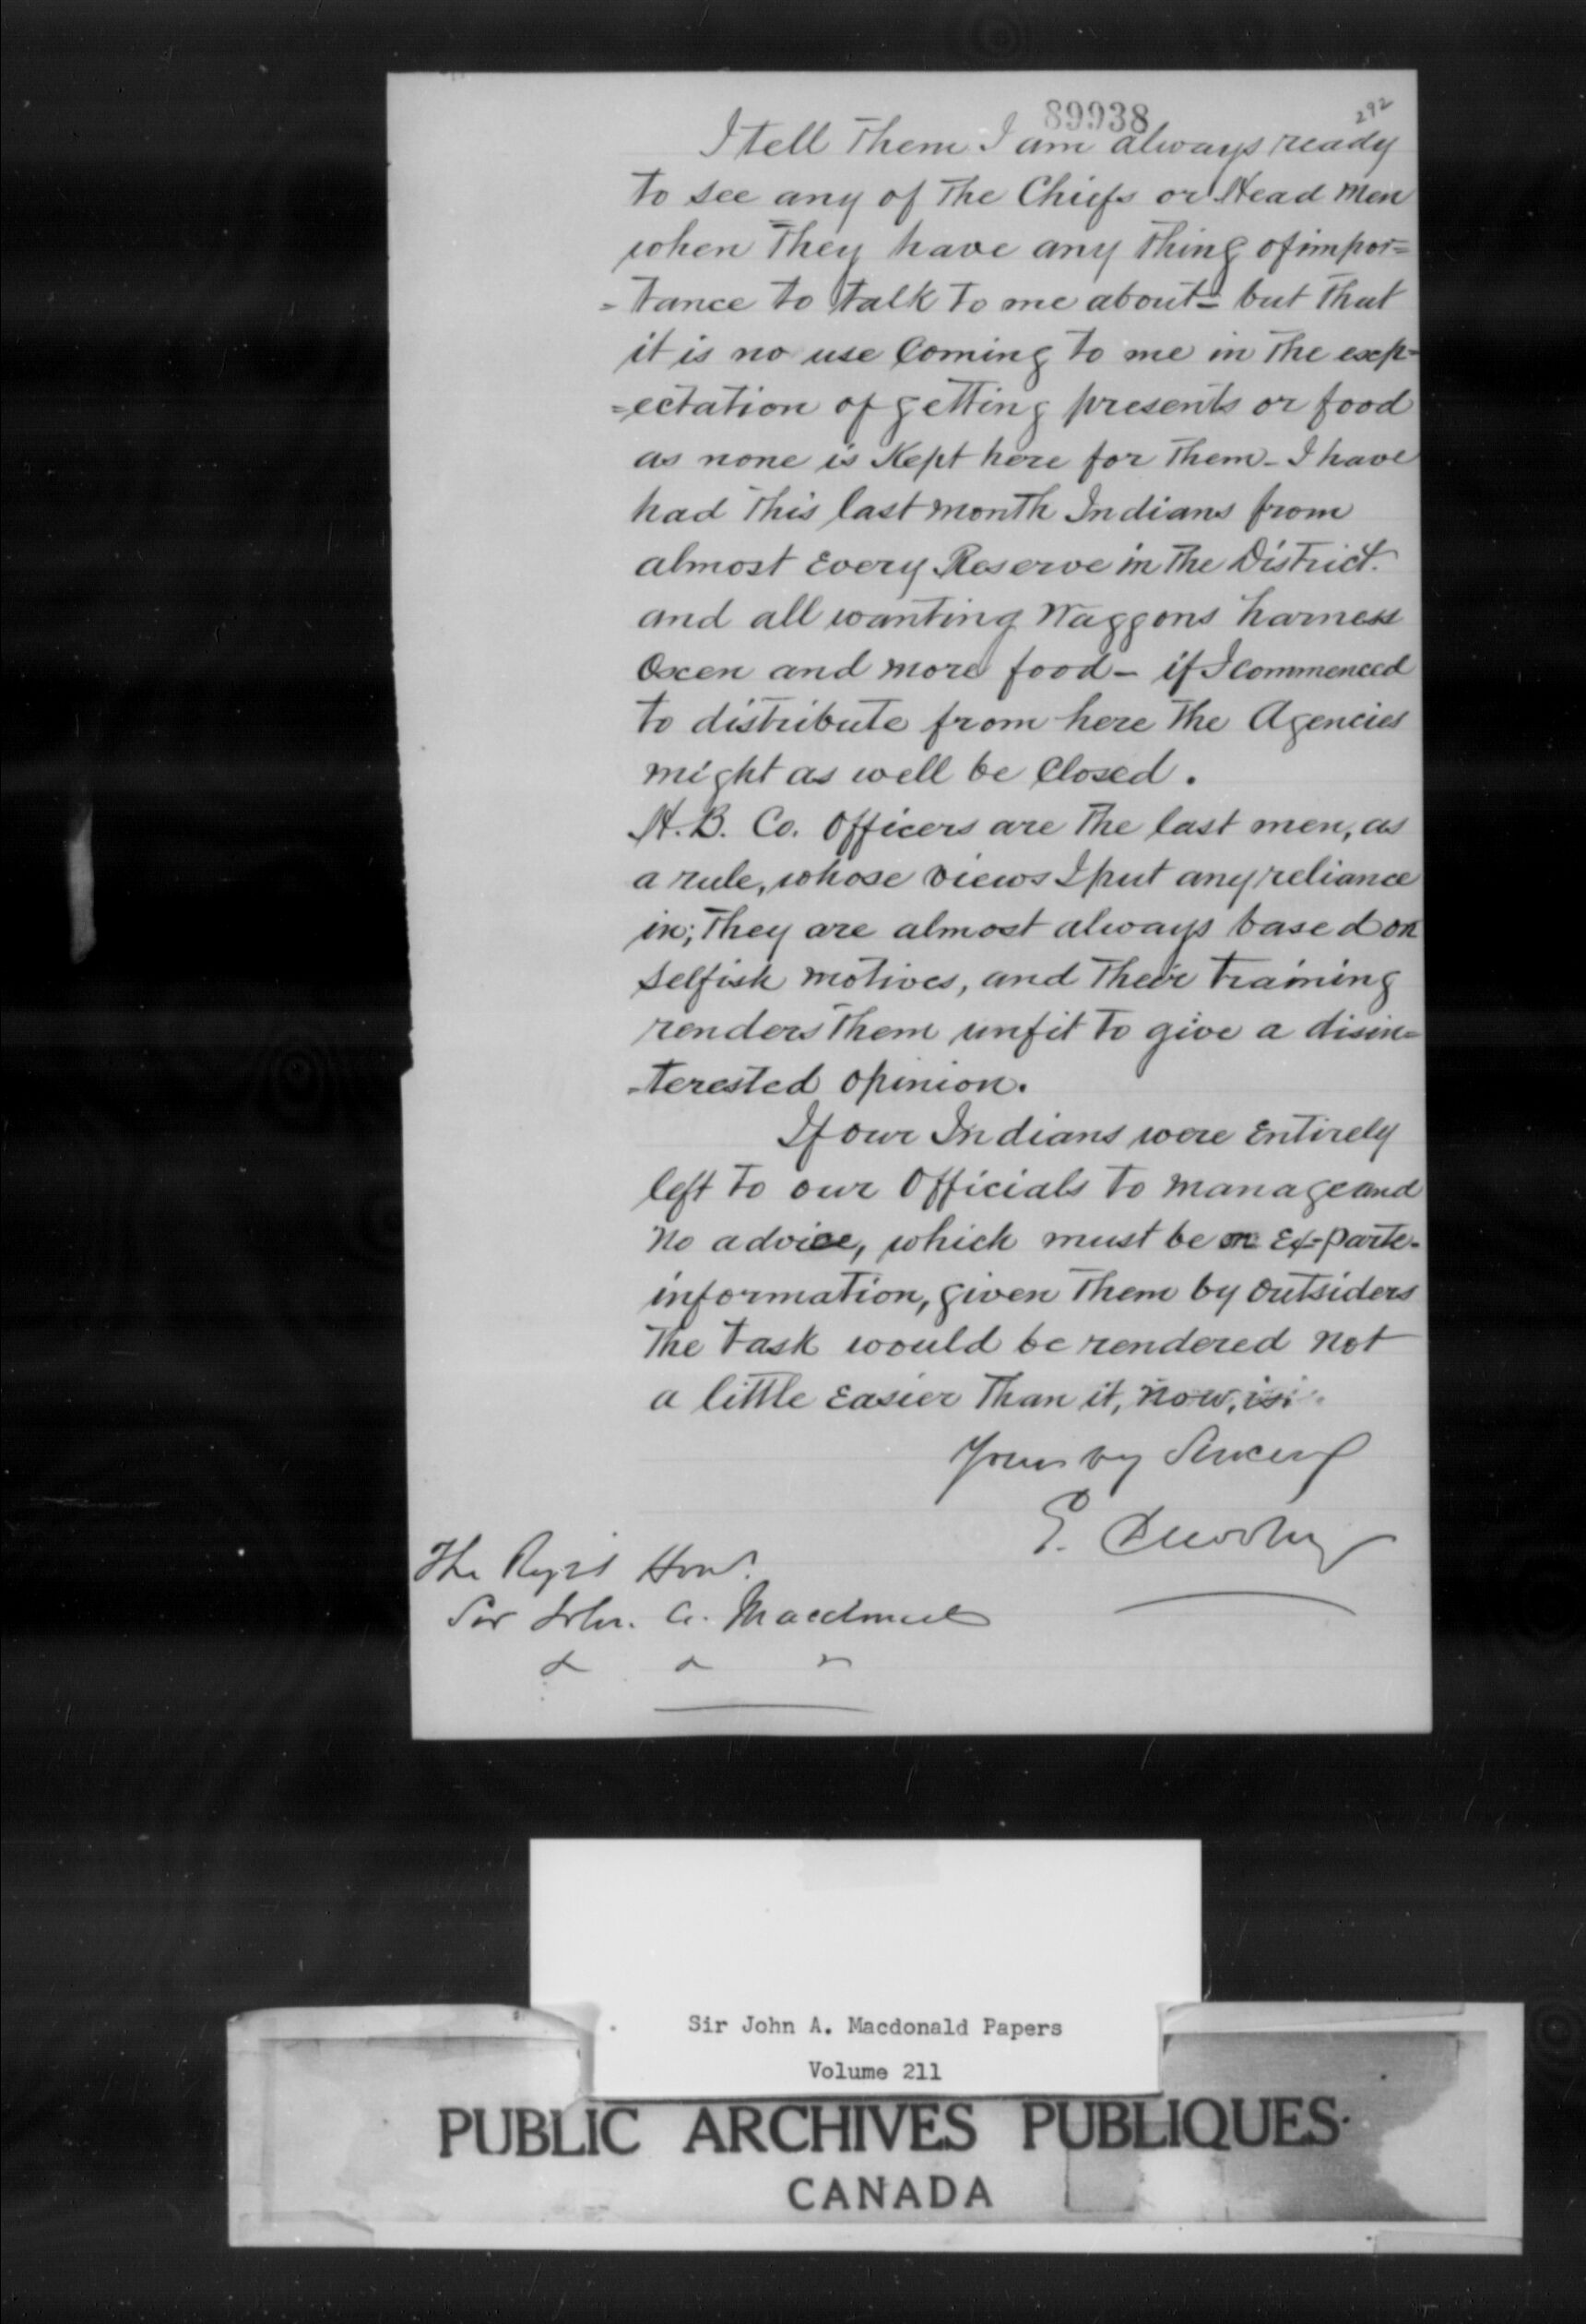 89938
292
I tell Them I am always ready
to see any of The Chiefs or Head Men
when They have any Thing of impor=
=tance to talk to me about - but That
it is no use Coming to me in The exp=
=ectation of getting presents or food
as none is Kept here for Them - I have
had This last month Indians from
almost Every Reserve in The District.
and all wanting Waggons harness
Oxen and more food - if I commenced
to distribute from here The Agencies
might as well be Closed.
H. B. Co. Officers are The last men, as
a rule, whose views I put any reliance
in; They are almost always based on
selfish motives, and Their training
renders Them unfit to give a disin=
-terested opinion.
If our Indians were Entirely
left to our Officials to manage and
no advice, which must be on Ex-parte-
information, given Them by outsiders
The task would be rendered not
a little Easier Than it, now, is.
Yours vy Sincerely
E. Dewdney
The Right Hon.
Sir John. A. Macdonald
Sir John A. Macdonald Papers
Volume 211
PUBLIC ARCHIVES PUBLIQUES
CANADA